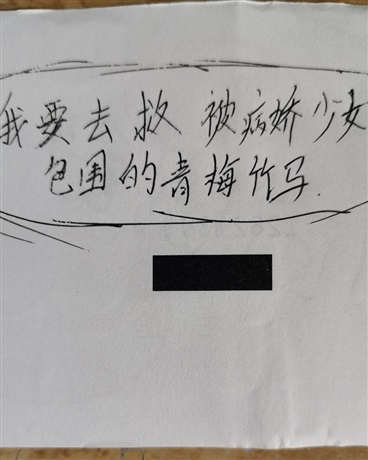 我要去救 被病娇少女
包围的青梅竹马